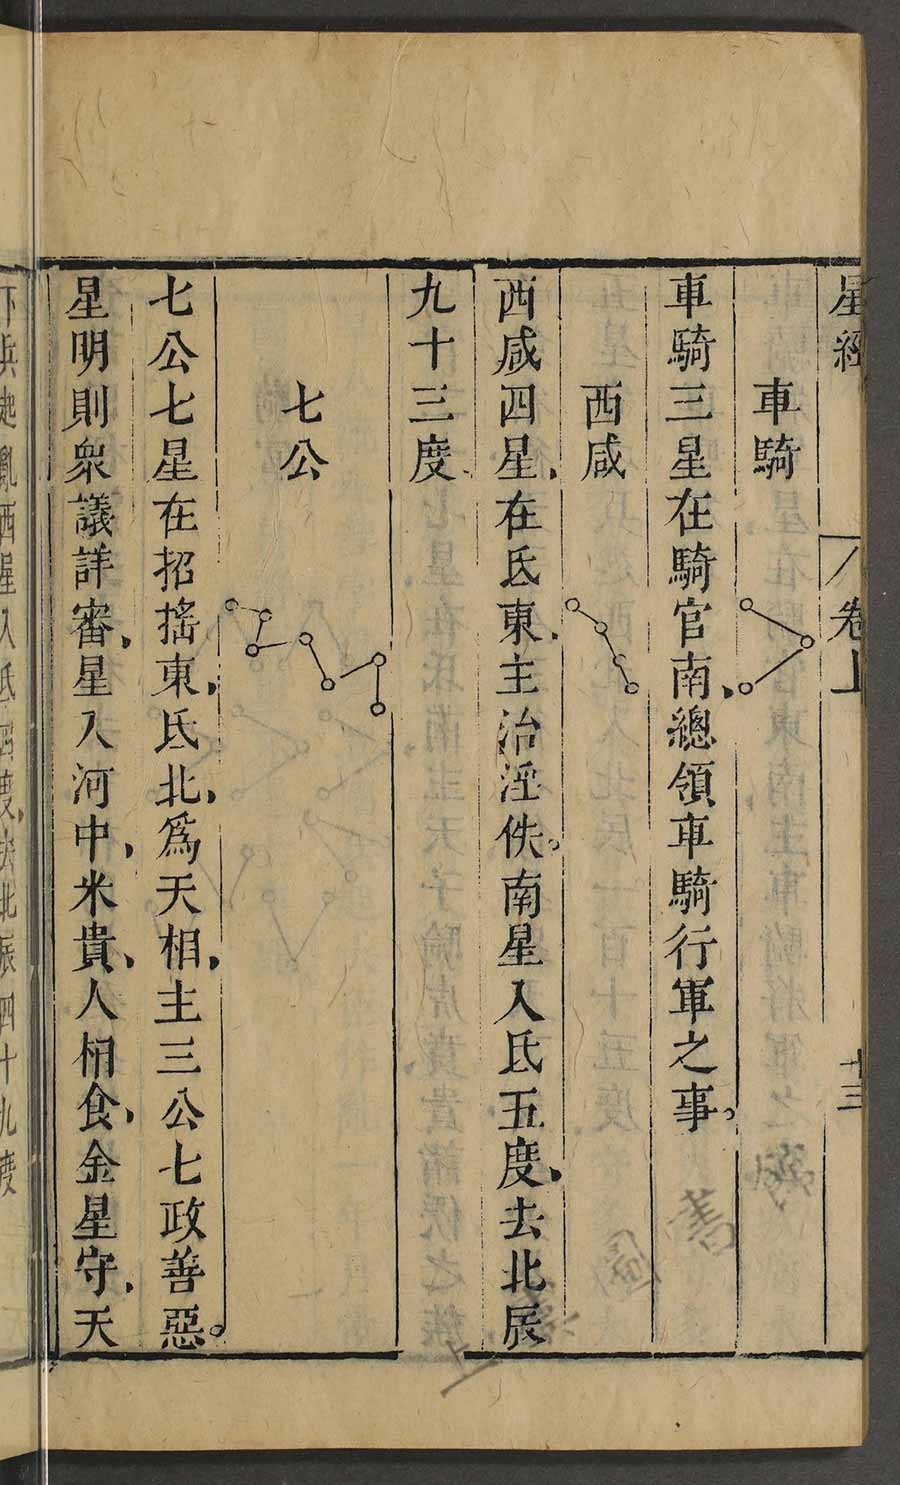 星經 卷上 十三
車騎
車騎三星在騎官南總領車騎行軍之事
西咸
西咸四星在氐東主治淫佚南星入氐五度去北辰
九十三度
七公
七公七星在招搖東氐北爲天相主三公七政善惡
星明則衆議詳審星入河中米貴人相食金星守天
下兵起亂酉星入氐四度去北辰四十九度